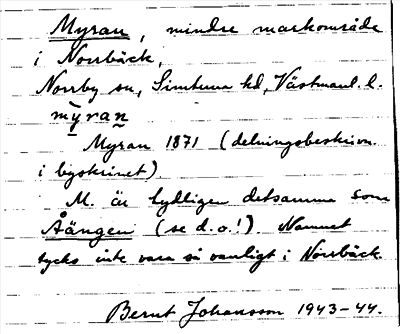 Myran, mindre markområde
i Norrbäck,
Norrby sn, Simtuna hd, Västmanl. l.
myran
Myran 1871 (delningsbeskrivn.
i byskrinet).
M. är tydligen detsamma som
Åängen (se d.o.!). Namnet
tycks inte vara så vanligt i Norrbäck.
Bernt Johansson 1943-44.